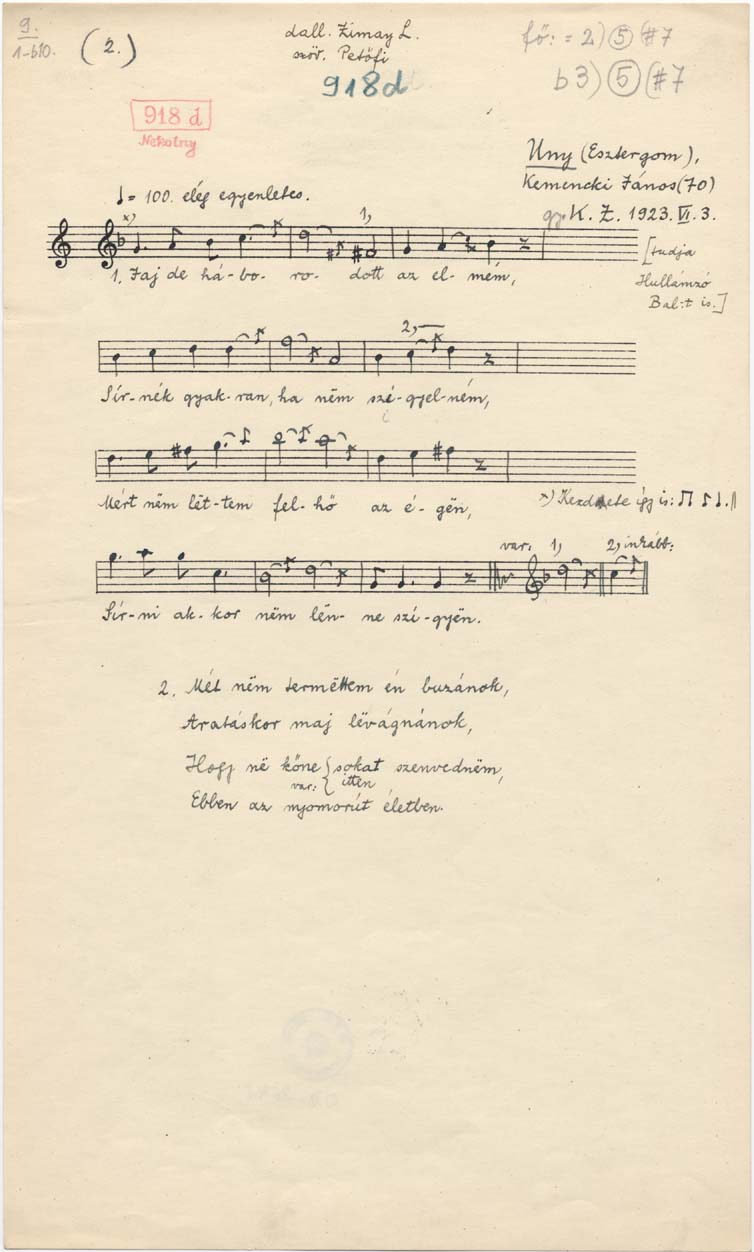 9.
1-b10.
(2.)
dall. Zimay L.
szöv. Petőfi
918d
fő: = 2) 5 (#7
b3) 5 (#7
918 d
Nekotny
Uny (Esztergom),
Kemencki János (70)
gy. K. Z. 1923. VI. 3.
♩= 100. elég egyenletes.
x) 1,
1. Jaj de há-bo- ro- dott az el- mém,
[tudja
Hullámzó
Bal:t is.]
2,
Sír-nék gyak-ran, ha nëm szé-gyel-ném,
i
Mért nëm lët-tem fel-hő az é- gën,
x) Kezdete így is:
var: 1, 2, inkább:
Sír-ni ak-kor nëm lën- ne szé-gyën.
2. Mét nëm termëttem én buzánok,
Aratáskor maj lëvágnánok,
Hogy në kőne { sokat szenvednëm,
var: { itten
Ebben az nyomorút életben.